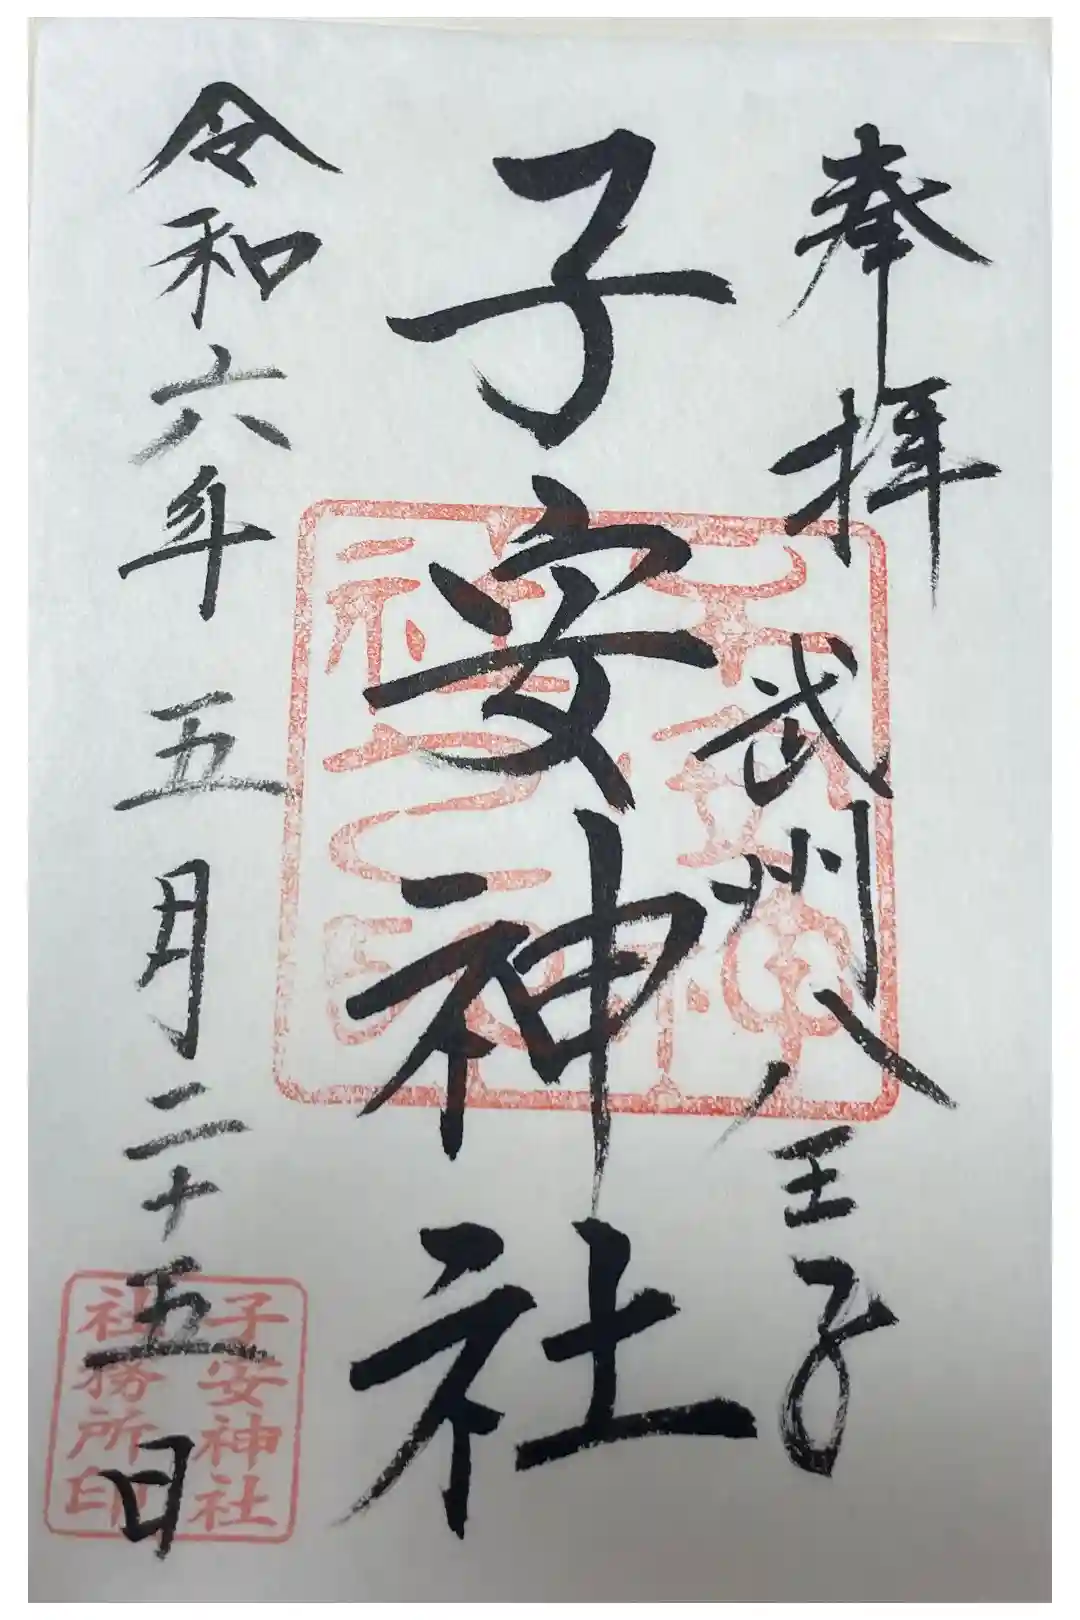 奉拝 武州八王子
子安神社
令和六年 五月二十五日
子安神社
社務所印
子安神
社之印